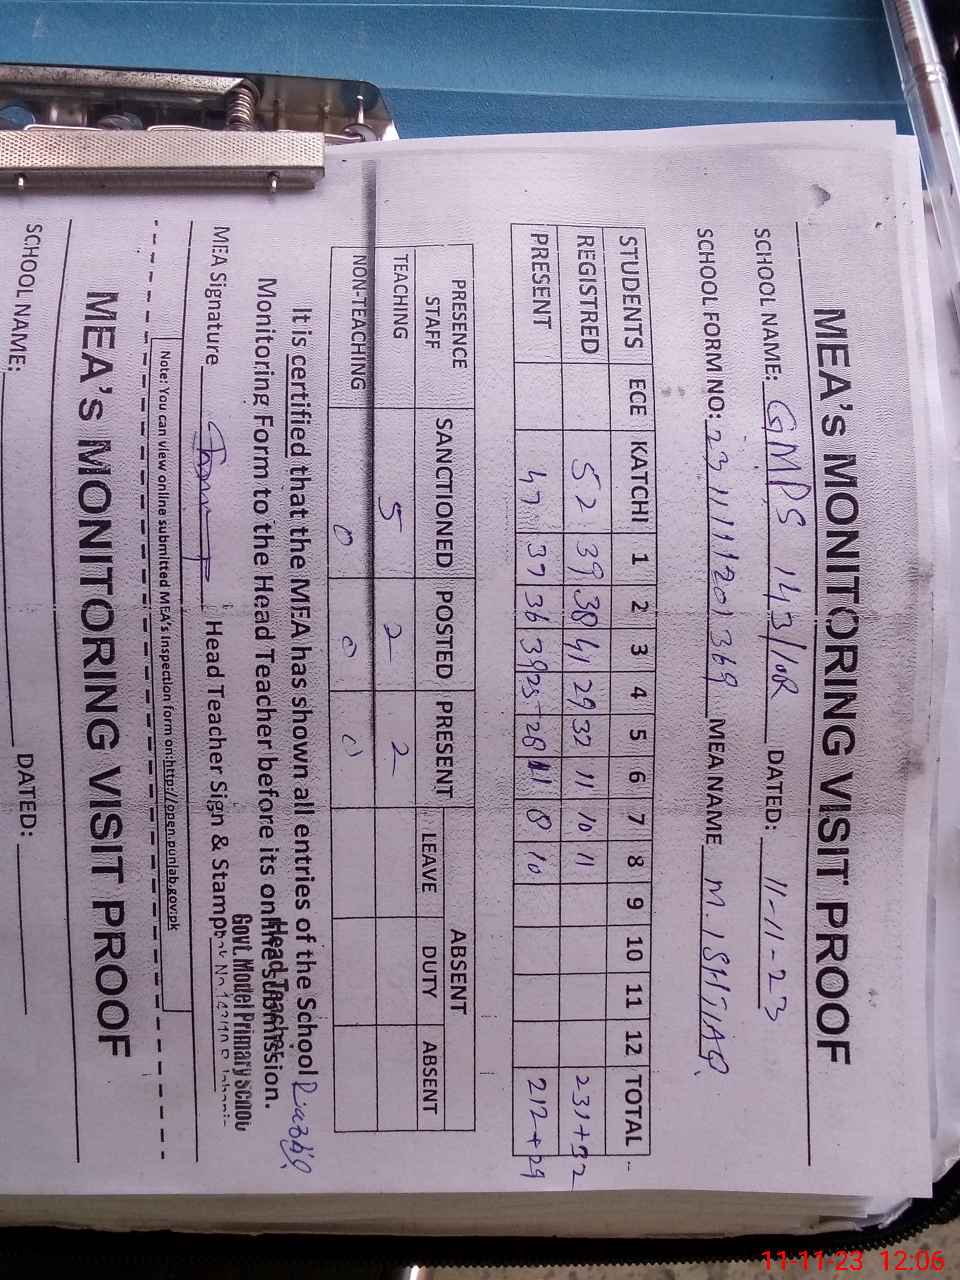 MEA's MONITORING VISIT PROOF
SCHOOL NAME: GMPS 143/10R DATED: 11-11-23
SCHOOL FORM NO: 23 11111201369 MEA NAME M. ISHTIAQ
STUDENTS ECE KATCHI 1 2 3 4 5 6 7 8 9 10 11 12 TOTAL
REGISTRED 52 39 38 41 29 32 11 10 11 231+32
PRESENT 47 37 36 39 25 28 11 8 10 212+29
PRESENCE STAFF SANCTIONED POSTED PRESENT ABSENT
LEAVE DUTY ABSENT
TEACHING 5 2 2
NON-TEACHING 0 0 0
It is certified that the MEA has shown all entries of the School
Monitoring Form to the Head Teacher before its online submission.
Head Teacher
Govt. Model Primary School
MEA Signature Head Teacher Sign & Stamp
Note: You can view online submitted MEA's Inspection form on:http://open.punlab.gov.pk
MEA's MONITORING VISIT PROOF
SCHOOL NAME: DATED:
11-11-23 12:06